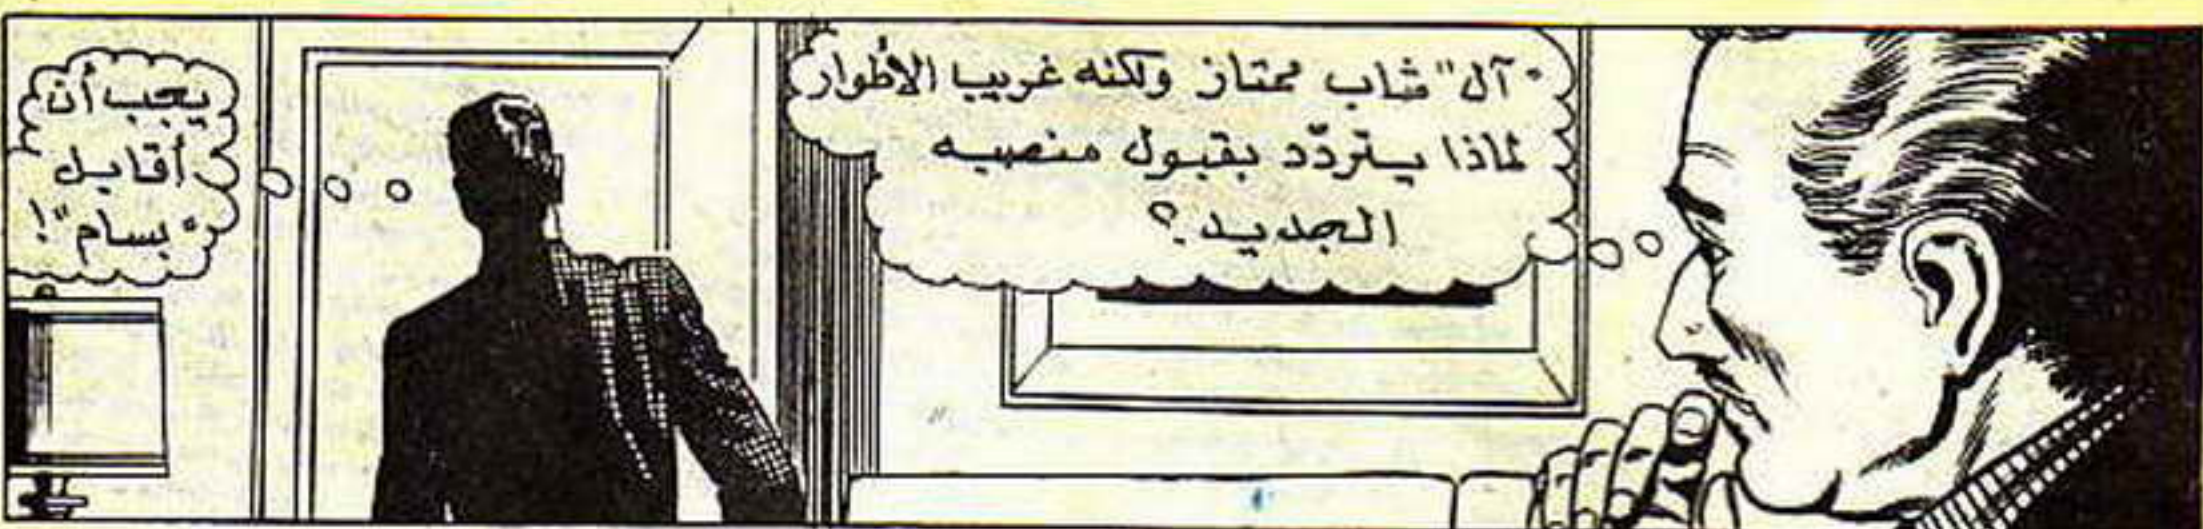 "آل" شاب ممتاز ولكنه غريب الأطوار
لماذا يتردّد بقبول منصبه
الجديد؟
يجب أن
أقابل
"بسام"!